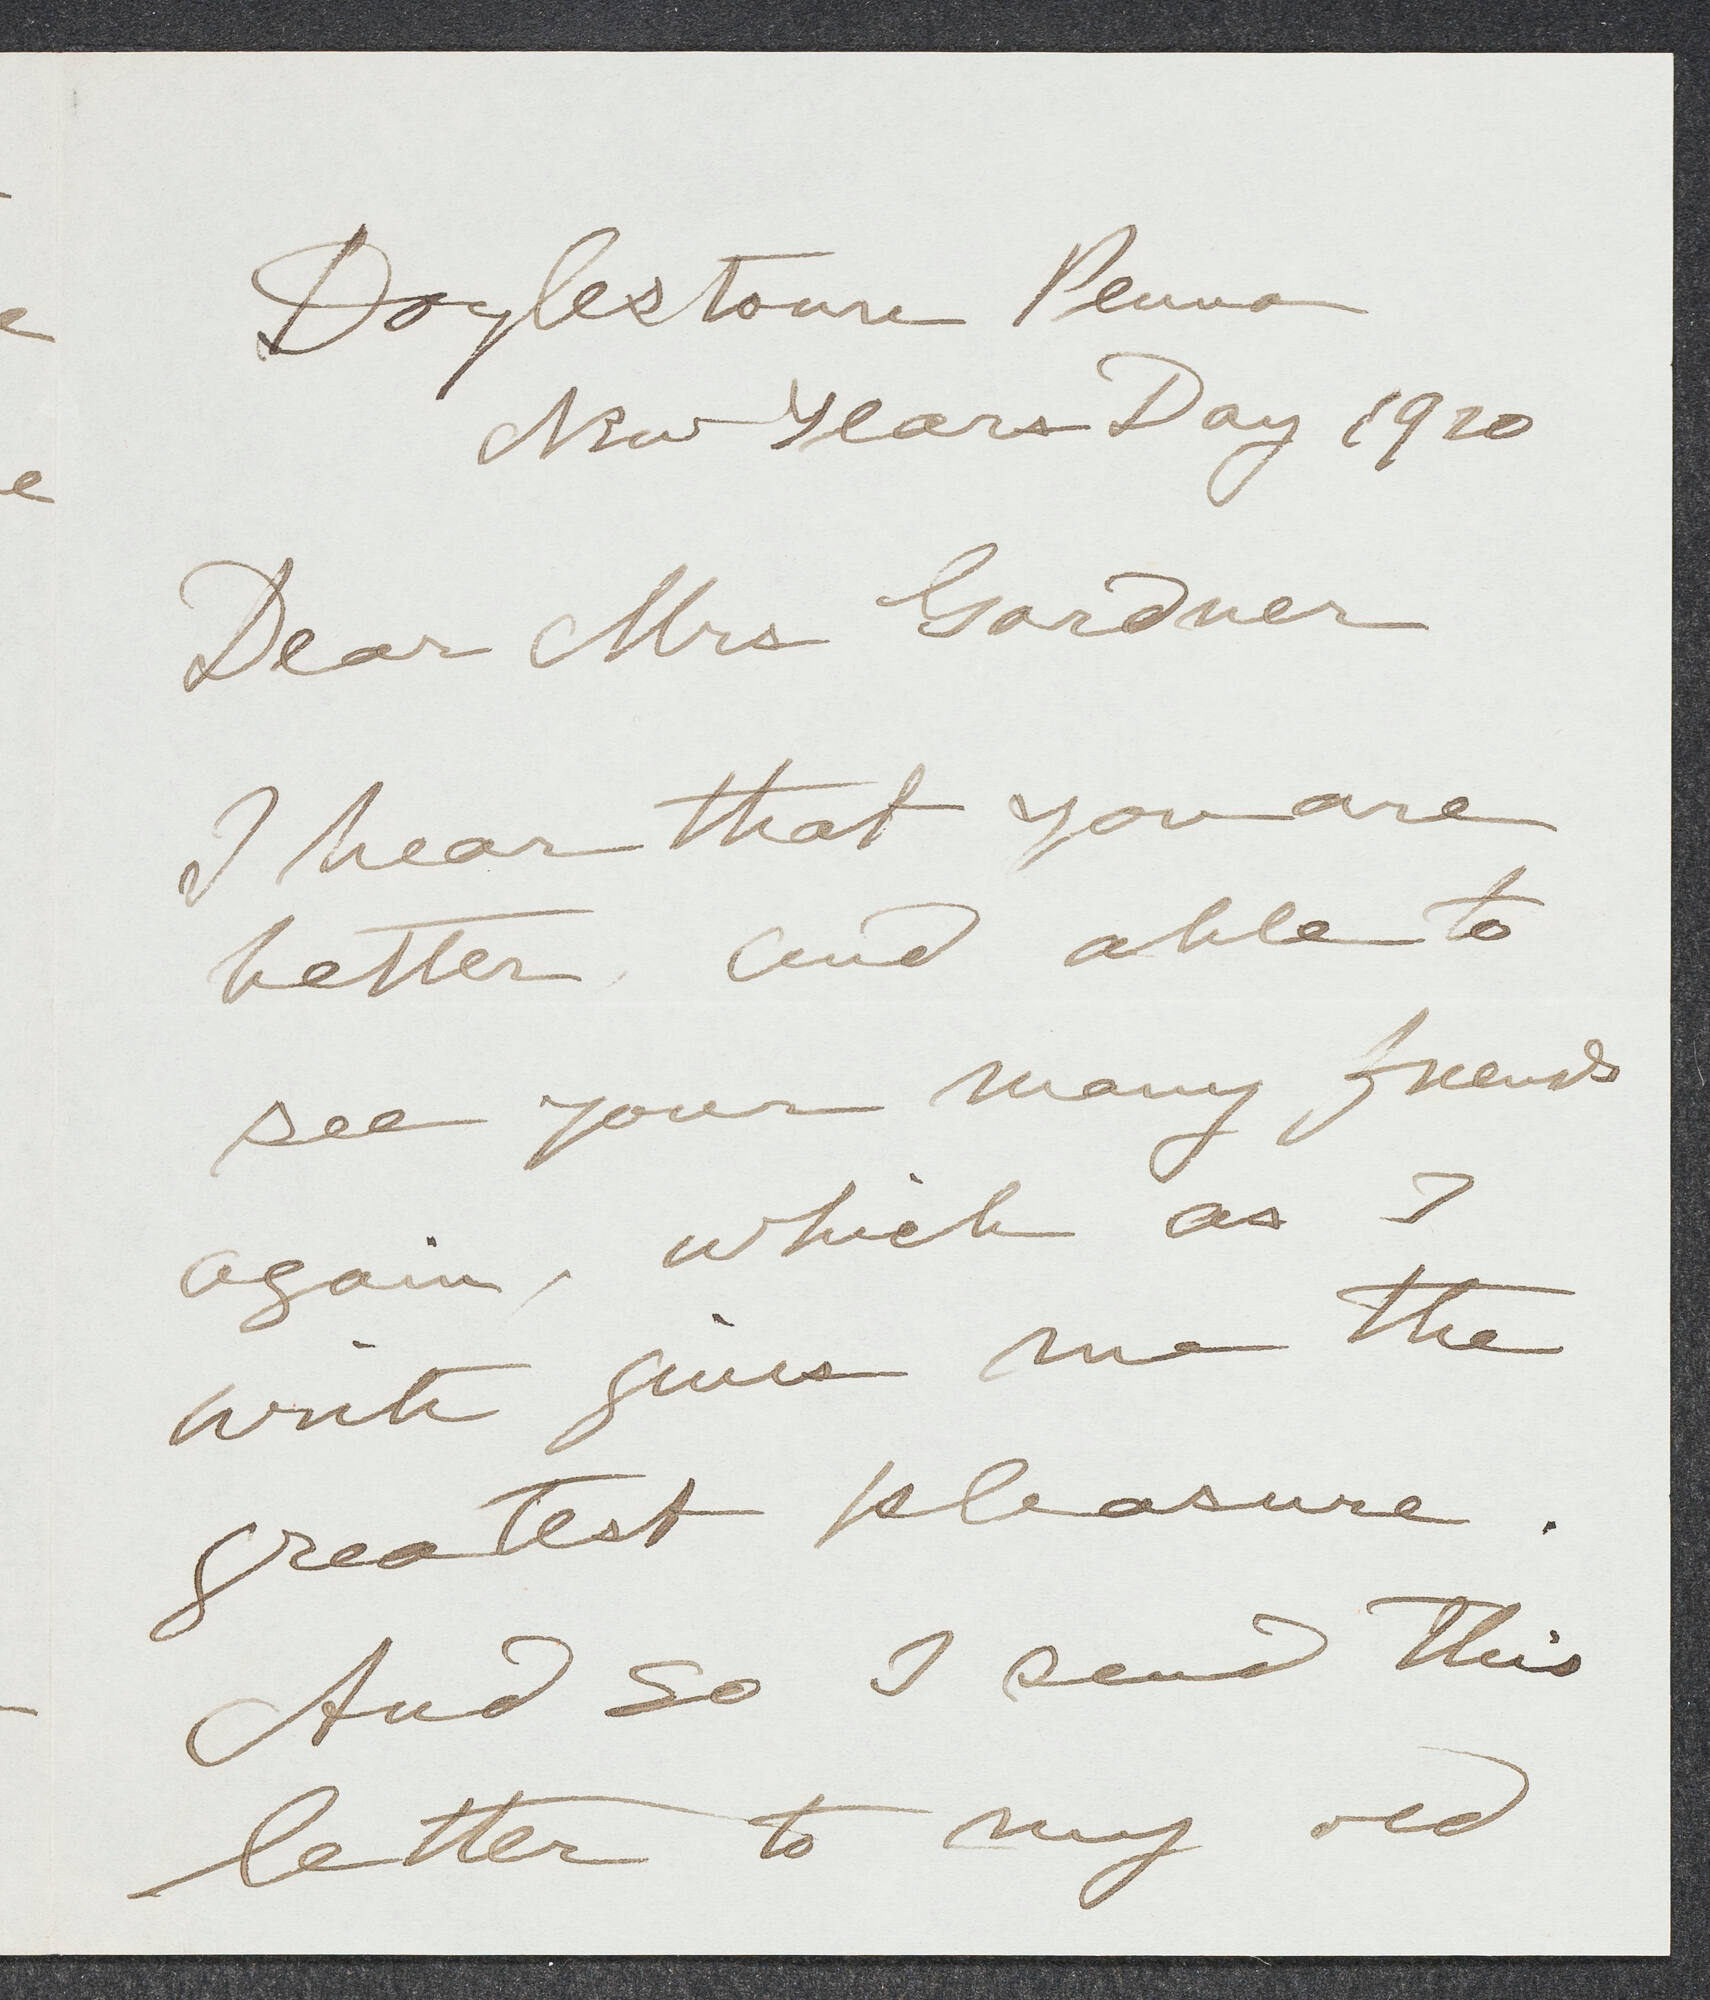 Doylestown Penna
New Years Day 1920
Dear Mrs Gardner
I hear that you are
better and able to
see your many friends
again, which as I
write gives me the
greatest pleasure.
And so I send this
letter to my old